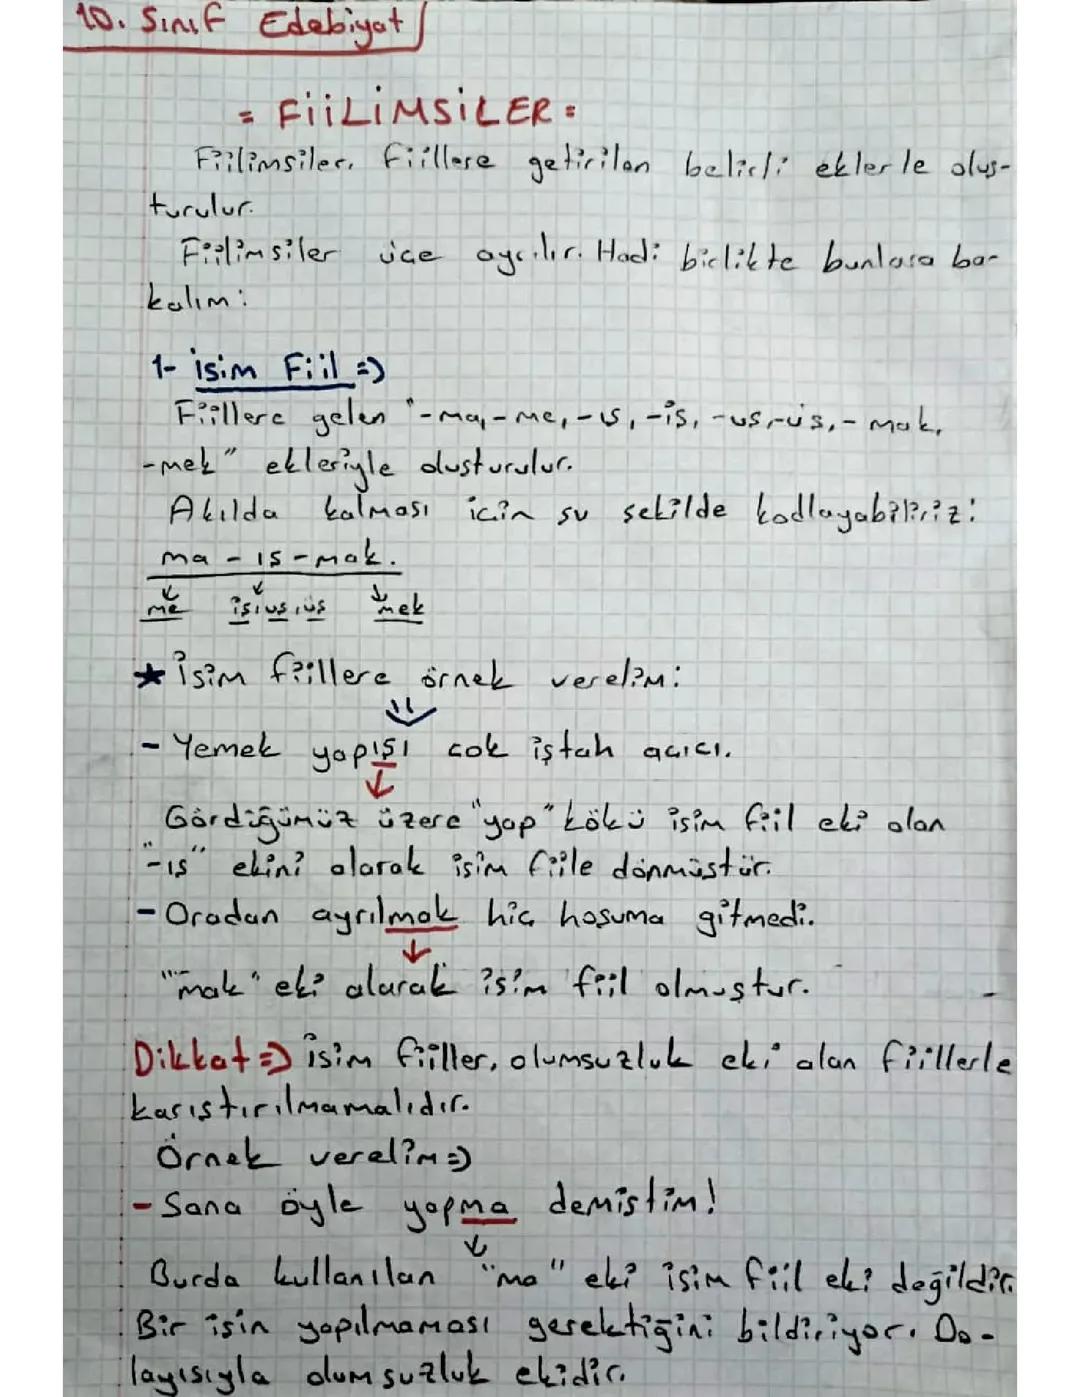 10. Sınıf Edebiyat
= FiiLiMSiLER =
Fiilimsiler, fiillere getirilen belirli eklerle oluş-
turulur.
Fiilimsiler üçe ayrılır. Hadi birlikte bunlara ba-
kalım:
1- isim Fiil =>
Fiillere gelen "-ma,-me,-ış,-iş,-uş,-üş,-mak,
-mek" ekleriyle oluşturulur.
Akılda kalması için şu şekilde kodlayabiliriz:
ma - ış - mak.
me iş,uş,üş mek
★ İsim fiillere örnek verelim:
- Yemek yapışı çok iştah açıcı.
Gördüğümüz üzere "yap" kökü isim fiil eki olan
"-ış" ekini alarak isim fiile dönmüştür.
- Oradan ayrılmak hiç hoşuma gitmedi.
"mak" eki alarak isim fiil olmuştur.
Dikkat => isim fiiller, olumsuzluk eki alan fiillerle
karıştırılmamalıdır.
Örnek verelim =>
- Sana öyle yapma demiştim!
Burda kullanılan "ma" eki isim fiil eki değildir.
Bir işin yapılmaması gerektiğini bildiriyor. Do-
layısıyla olumsuzluk ekidir.